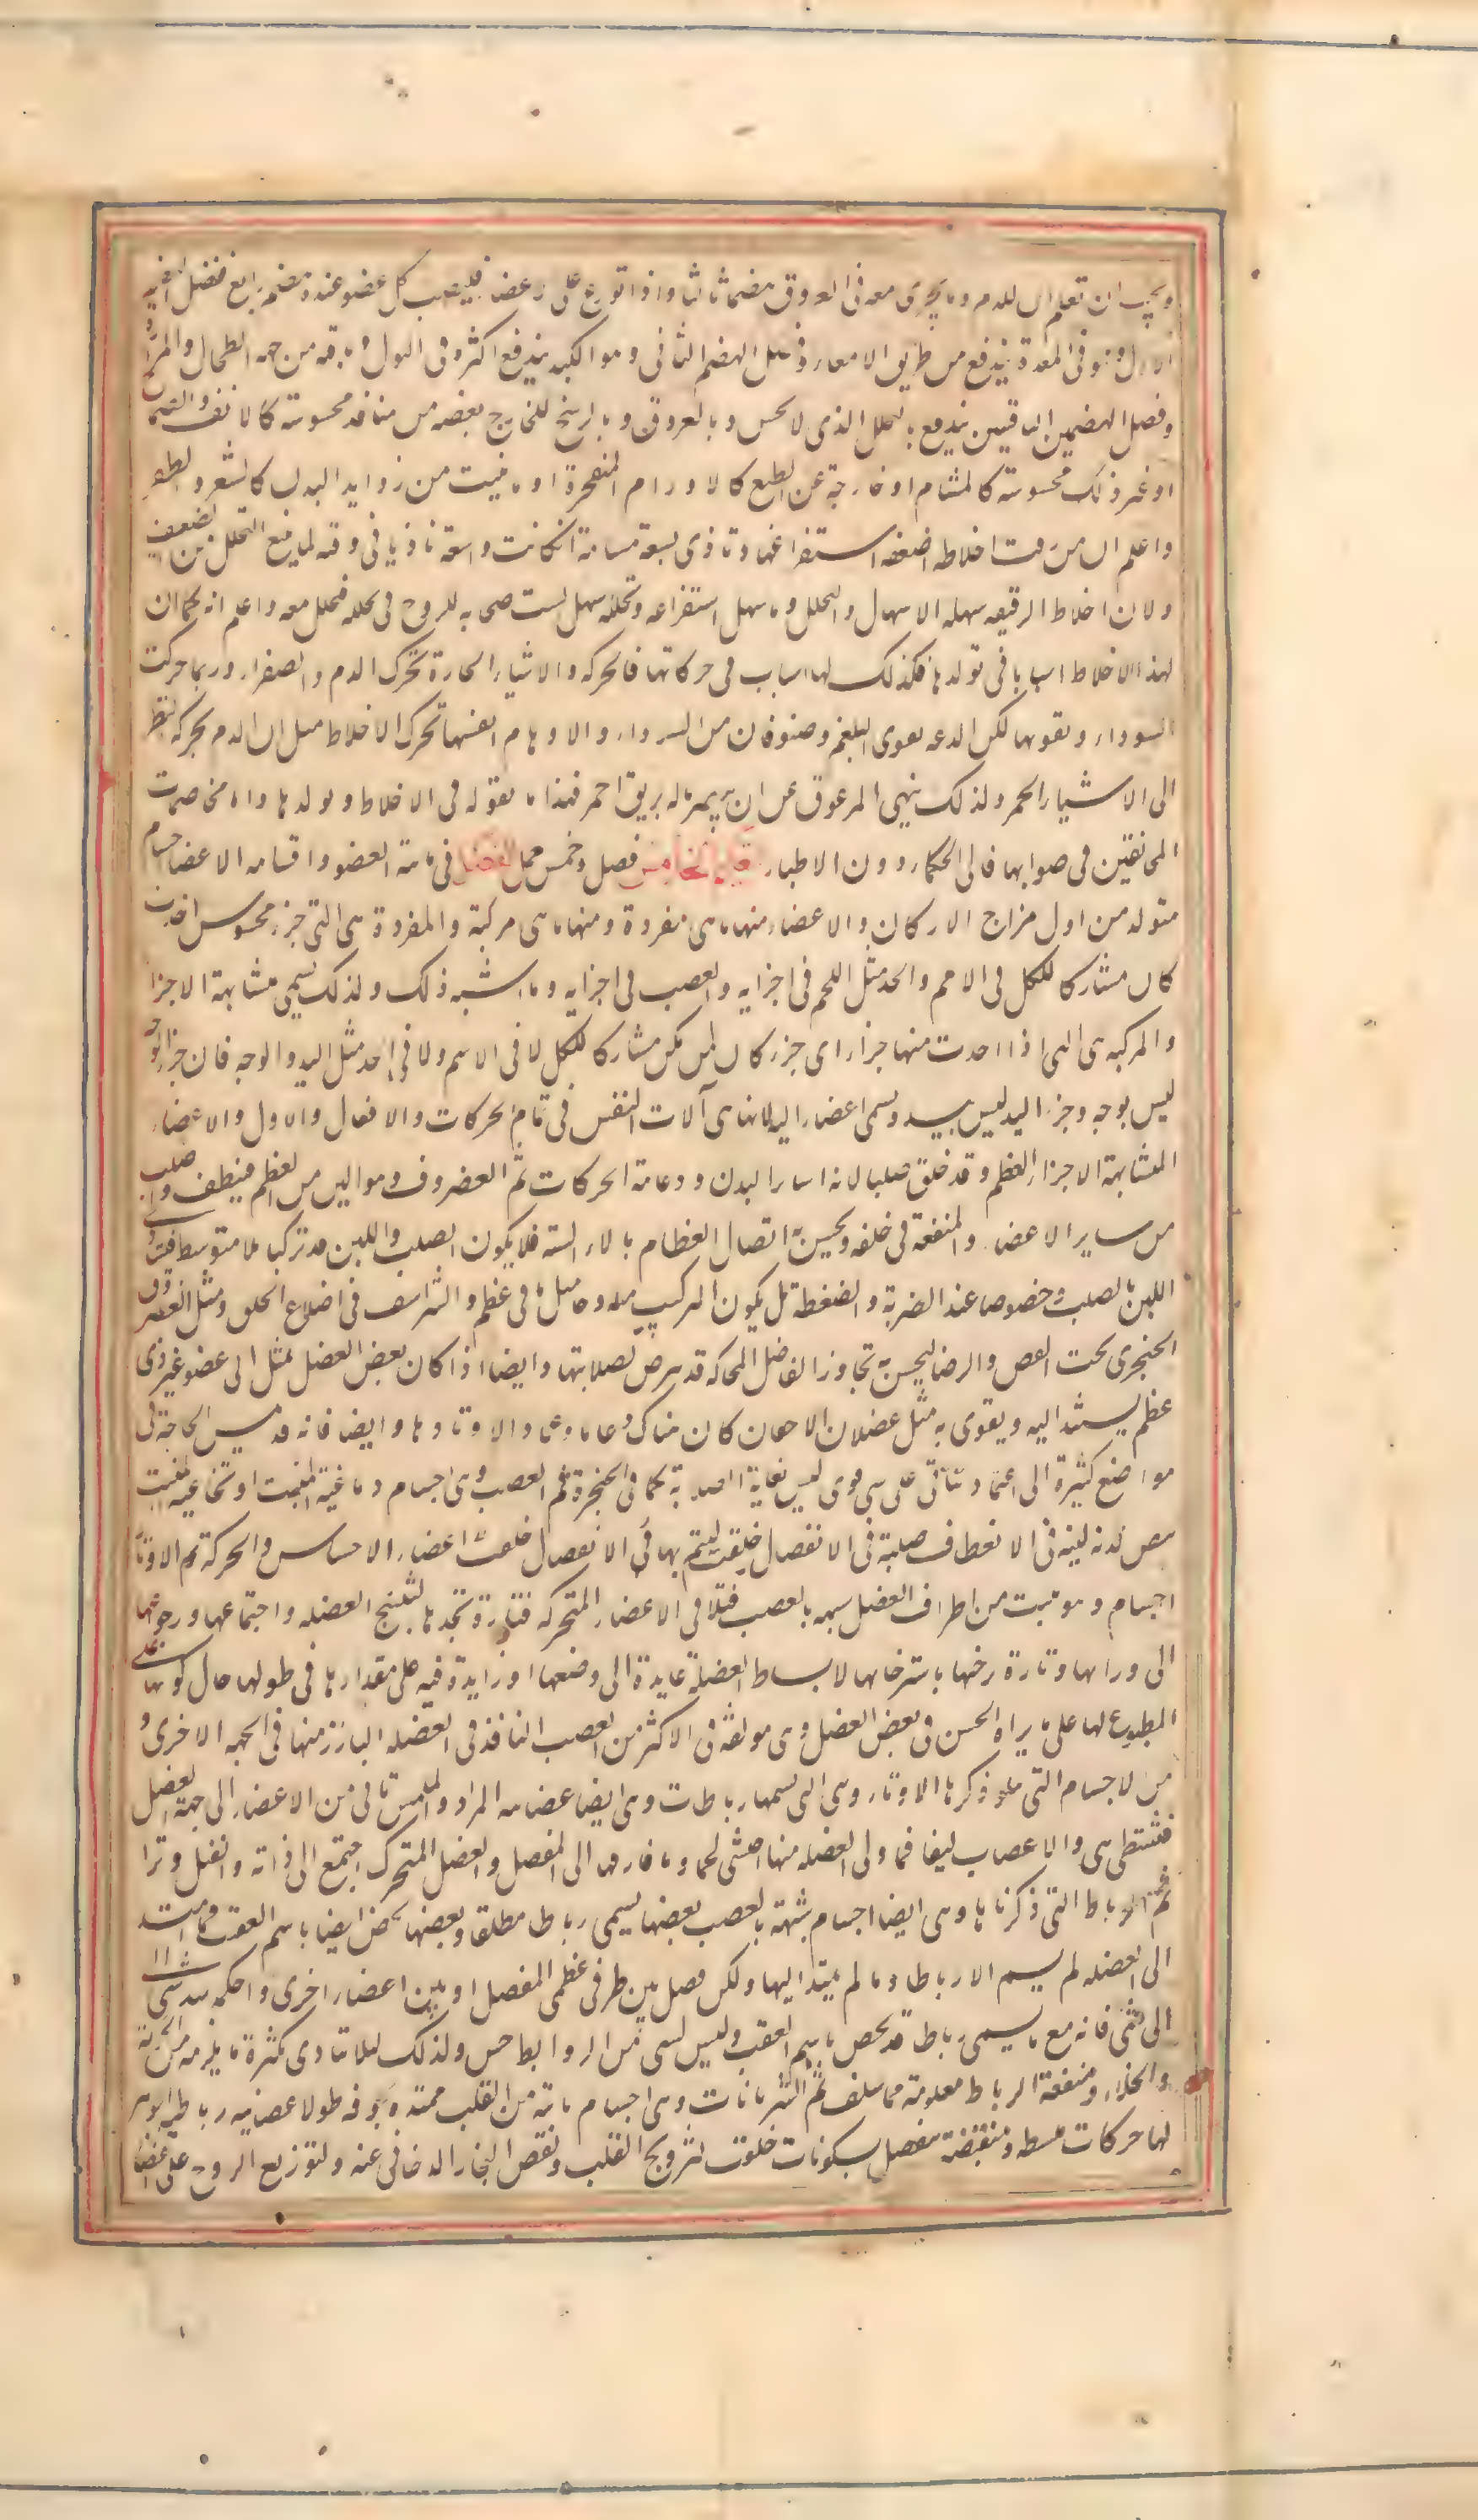 ويجب ان تعلم ان للدم وما يجرى معه فى العروق هضما ثالثا واذا توزع على الاعضا فليصب كل عضو عنده هضم رابع ففضل الهضم
الاول وهو فى المعدة يندفع من طريق الامعاء وفضل الهضم الثانى وهو الكبد يندفع اكثره فى البول وباقيه من جهة الطحال والمرارة
وفضل الهضمين الباقيين يندفع بالتحلل الذى لا يحس وبالعروق وبالوسخ الخارج بعضه من منافذ محسوسة كالانف والصماخ
او غير محسوسة كالمسام او خارجة عن الطبع كالاورام المنفجرة او ما ينبت من زوايد البدن كالشعر والظفر
واعلم ان من رقت اخلاطه اضعفه استفراغها وتاذى بسعة مسامه ان كانت واسعة تاذيا فى قوته لما يتبع التحلل من الضعف
ولان اخلاط الرقيقه سهله الاسهال والتحلل وما سهل استفراغه وتحلله سهل استصحابه للروح فى تحلله فتحلل معه واعلم انه كما ان
لهذا الاخلاط اسبابا فى تولدها فكذلك لها اسباب فى حركاتها فالحركه والاشياء الحارة تحرك الدم والصفراء وربما حركت
السوداء وتقويها لكن الدعه تقوى البلغم وصنوفا من السوداء والاوهام انفسها تحرك الاخلاط مثل ان الدم يحركه النظر
الى الاشياء الحمر ولذلك ينهى المرعوف عن ان يبصر ماله بريق احمر فهذا ما نقوله فى الاخلاط وتولدها واما مخاصمت
المخالفين فى صوابها فالى الحكماء دون الاطباء الخامس فصل وخمس جمل الفصل فى ماهية العضو واقسامه الاعضا اجسام
متولده من اول مزاج الاركان والاعضاء منها ما هى مفردة ومنها ما هى مركبة والمفردة هى التى جزء محسوس اخذت
كان مشاركا للكل فى الاسم والحد مثل اللحم فى اجزايه والعصب فى اجزايه وما اشبه ذلك ولذلك يسمى متشابهة الاجزا
والمركبه هى التى اذا اخذت منها جزاء اى جزء كان لم يكن مشاركا للكل لا فى الاسم ولا فى الحد مثل اليد والوجه فان جزا الوجه
ليس بوجه وجزء اليد ليس بيد ويسمى اعضاء اليه لانها هى آلات النفس فى تمام الحركات والافعال والاول والاعضاء
المتشابهة الاجزاء العظم وقد خلق صلبا لانه اساس البدن ودعامة الحركات ثم الغضروف وهو الين من العظم فينطف واصلب
من ساير الاعضاء والمنفعة فى خلقه ويحسن به اتصال العظام بالاء الينه فلا يكون الصلب واللين قد تركبا بلا متوسط فيتاذى
اللين بالصلب وخصوصا عند الضربة والضغطة بل يكون التركيب مثل ما فى عظم والشراسف فى اضلاع الخلف ومثل الغضروف
الحنجرى تحت القص وايضا ليحسن به تجاوز المفاصل المحاكه فلا ترض لصلابتها وايضا اذا كان بعض العضل تمتد الى عضو غير ذى
عظم يستند اليه ويقوى به مثل عضلات الاجفان كان هناك دعاما وعمادا لاوتارها وايضا فانه قد تمس الحاجة فى
مواضع كثيرة الى اعتماد يتاتى على شى قوى ليس بغاية الصلابة كما فى الحنجرة ثم العصب وهى اجسام دماغية المنبت او نخاعية المنبت
بيض لدنه لينه فى الانعطاف صلبة فى الانفصال خلقت ليتم بها فى الانفصال خلقت اعضاء الاحساس والحركة ثم الاوتار
اجسام وهو تنبت من اطراف العضل شبيهه بالعصب فتلاقى الاعضاء المتحركه فتارة تجذبها لتشنج العضله واجتماعها ورجوعها
الى وراها وتارة ترخيها باسترخائها لانبساط العضلة عايدة الى وضعها او زايدة فيه على مقدارها فى طولها حال كونها على
المطبوع لها على ما يراه الحس فى بعض العضل وهى مولفة فى الاكثر من العصب النافذ فى العضله البارز منها فى الجهه الاخرى و
من الاجسام التى تتلو ذكرنا الاوتار وهى التى تسمها رباطات وهى ايضا عصبانيه المراى والملمس تاتى من الاعضاء الى جهة العضل
فتشظى هى والاعصاب ليفا فما ولى العضله منها احتشى لحما وما فارقها الى المفصل والعضل المتحرك اجتمع الى ذاته وانفتل وترا
ثم الرباط التى ذكرناها وهى ايضا اجسام شبيهة بالعصب بعضها يسمى رباط مطلقا وبعضها يخص ايضا باسم العقب فما امتد
الى العضله لم يسم الا رباطا وما لم يمتد اليها ولكن وصل بين طرفى عظمى المفصل او بين اعضاء اخرى واحكم شد شى
الى شى فانه مع ما يسمى رباط قد يخص باسم العقب وليس لشى من الروابط حس ولذلك لئلا يتاذى بكثرة ما يلزمه من الحركة
والحك ومنفعة الرباط معلومة مما سلف ثم الشريانات وهى اجسام نابتة من القلب ممتدة مجوفه طولا عصبانيه رباطية الجوهر
لها حركات منبسطه ومنقبضة تنفصل بسكونات خلقت لترويح القلب ونفض البخار الدخانى عنه ولتوزيع الروح على اعضا